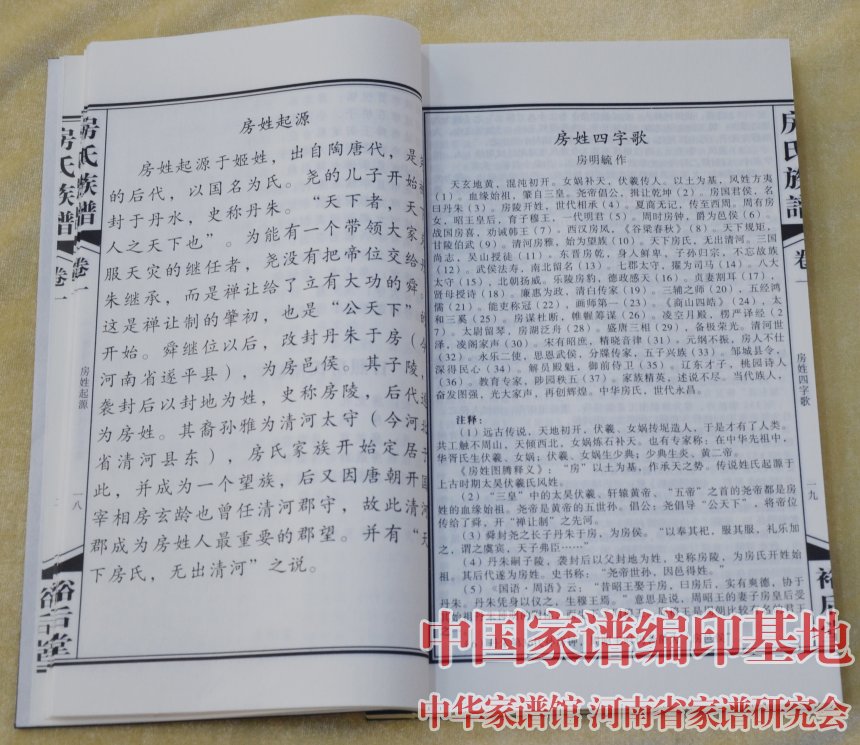 房氏族谱
卷一
房姓起源
一八
裕后堂
房氏族谱
卷一
房姓起源
房姓起源于姬姓，出自陶唐代，是
的后代，以国名为氏。尧的儿子开始
封于丹水，史称丹朱。“天下者，天
人之天下也”。为能有一个带领大家
服天灾的继任者，尧没有把帝位交给
朱继承，而是禅让给了立有大功的舜。
这是禅让制的肇初，也是“公天下”的
开始。舜继位以后，改封丹朱于房（今
河南省遂平县），为房邑侯。其子陵，
袭封后以封地为姓，史称房陵，后代
为房姓。其裔孙雅为清河太守（今河
省清河县东），房氏家族开始定居于
此，并成为一个望族，后又因唐朝开国
宰相房玄龄也曾任清河郡守，故此清河
郡成为房姓人最重要的郡望。并有“天
下房氏，无出清河”之说。
房姓四字歌
房明毓 作
天玄地黄，混沌初开。女娲补天，伏羲传人。以土为基，风姓方夷
（1）。血缘始祖，肇自三皇。尧帝倡公，揖让乾坤（2）。房国君侯，名
曰丹朱（3）。房陵开姓，世代相承（4）。夏商无记，传至西周。周有房
女，昭王皇后，育子穆王，一代明君（5）。周时房钟，爵为邑侯（6）。
战国房喜，劝诫韩王（7）。西汉房凤，《谷梁春秋》（8）。天下规矩，
甘陵伯武（9）。清河房雅，始为望族（10）。天下房氏，无出清河。三国
尚志，吴山授徒（11）。东晋房乾，身人鲜卑，子孙归宗，不忘故族
（12）。武侯法寿，南北留名（13）。七郡太守，擢为司马（14）。八大
太守（15），北朝扬威。乐陵房豹，德政感天（16）。贞妻割耳（17），
贤母授诗（18）。廉惠为政，清白传家（19）。三辅之师（20），五经鸿
儒（21）。能吏称冠（22），画师第一（23）。《商山四皓》（24），太
和三奚（25）。房谋杜断，帷幄筹谋（26）。凌空月殿，楞严译经（2
7）。太尉留琴，房湖泛舟（28）。盛唐三相（29），备极荣光。清河世
泽，凌阁家声（30）。宋有昭庶，精晓音律（31）。元纲不振，房人不仕
（32）。永乐二使，思恩武侯，分牒传家，五子兴族（33）。邹城县令，
深得民心（34）。解员殿魁，御前侍卫（35）。辽东才子，桃园诗人
（36）。教育专家，陟园秩五（37）。家族精英，述说不尽。当代族人，
奋发图强，光大家声，再创辉煌。中华房氏，世代永昌。
注释：
（1）远古传说，天地初开，伏羲、女娲抟坭造人，于是才有了人类。
共工触不周山，天倾西北，女娲炼石补天。也有专家称：在中华先祖中，
华胥氏生伏羲、女娲；伏羲、女娲生少典；少典生炎、黄二帝。
《房姓图腾释义》：“房”以土为基，作承天之势。传说姓氏起源于
上古时期太昊伏羲氏风姓。
（2）“三皇”中的太昊伏羲、轩辕黄帝、“五帝”之首的尧帝都是房
姓的血缘始祖。尧帝是黄帝的五世孙。倡公：尧倡导“公天下”，将帝位
传给了舜，开“禅让制”之先河。
（3）舜封尧之长子丹朱于房，为房侯。“以奉其祀，服其服，礼乐加
之，谓之虞宾，天子弗臣……”
（4）丹朱嗣子陵，袭封后以父封地为姓，史称房陵，为房氏开姓始
祖。其后代遂为房姓。史书称：“尧帝世孙，因邑得姓。”
（5）《国语·周语》云：“昔昭王娶于房，曰房后，实有爽德，协于
丹朱。丹朱凭身以仪之，生穆王焉。”意思是说，周昭王的妻子房皇后受
房氏族谱
卷一
房姓四字歌
一九
中国家谱编印基地
中华家谱馆 河南省家谱研究会